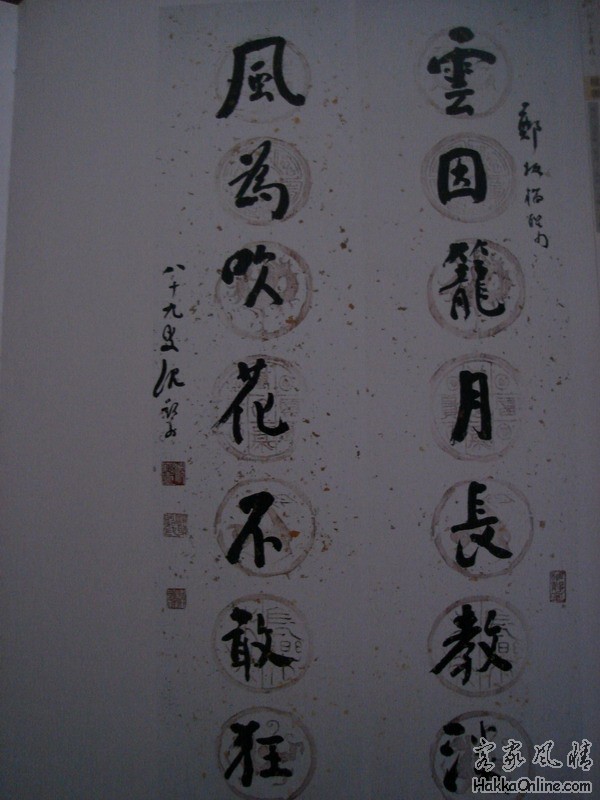 鄭板橋
雲因籠月長教淡
風為吹花不敢狂
八十九叟沈
客家風情
HakkaOnline.com